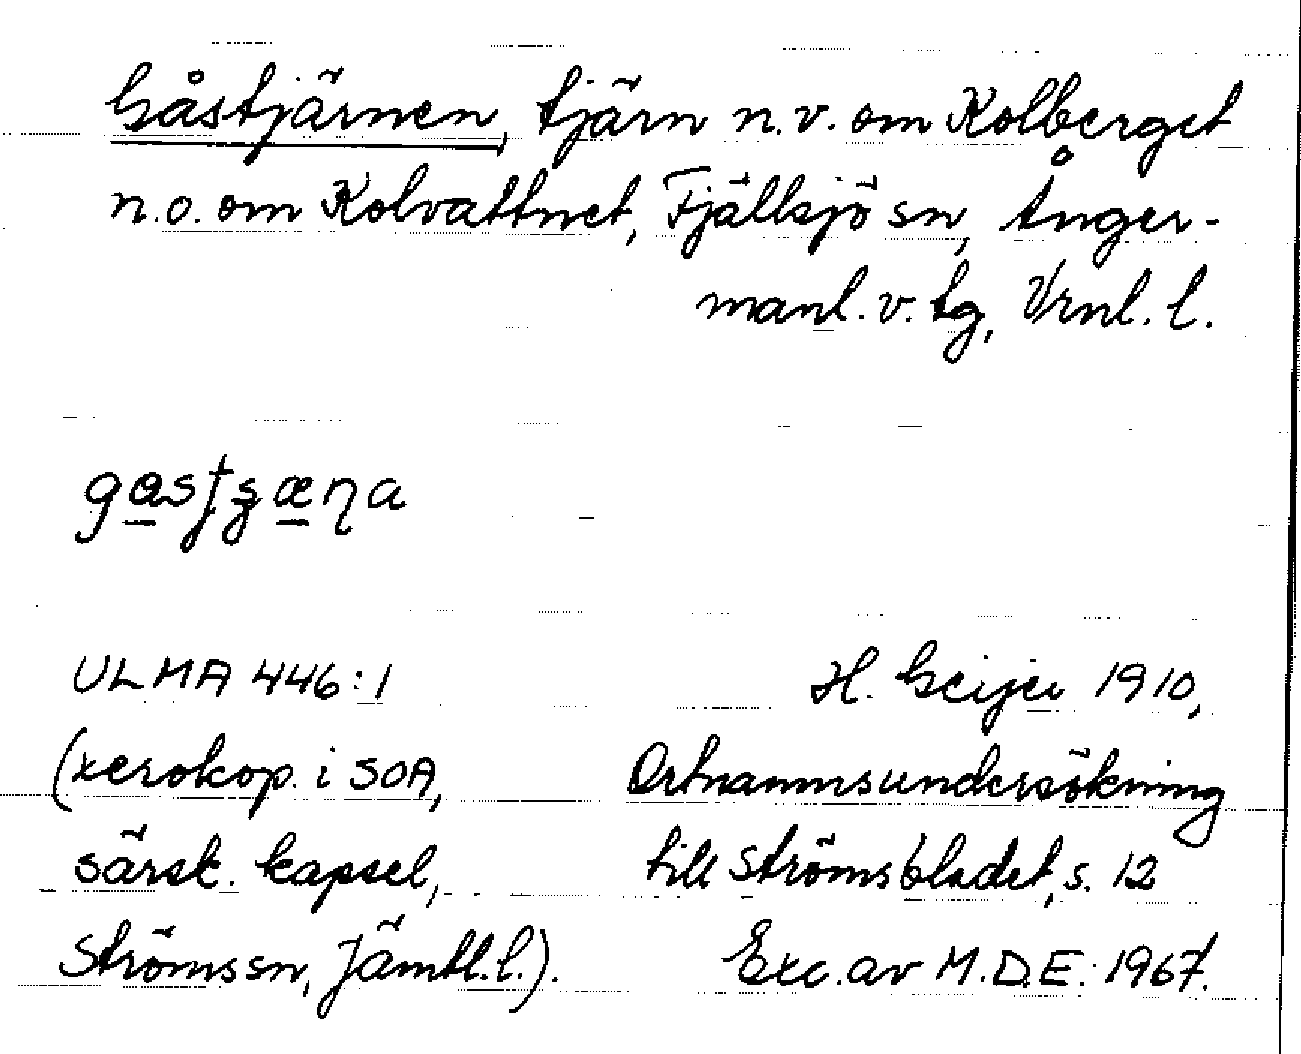 Gåstjärnen, tjärn n.v. om Kolberget
n.o. om Kolvattnet, Fjällsjö sn, Ånger-
manl. v. tg, Vrnl. l.
ULMA 446:1
(xerokop. i SOA,
särsk. kapsel,
Ströms sn, Jämtl. l.).
H. Geijer 1910,
Ortnamnsundersökning
till Strömsbladet, s. 12
Exc. av M.D.E. 1967.